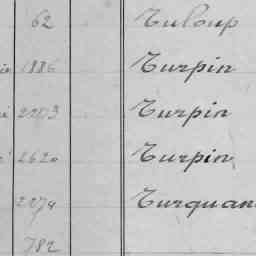 62 Tuloup
1886 Turpin
2273 Turpin
2620 Turpin
2274 Turquan
782